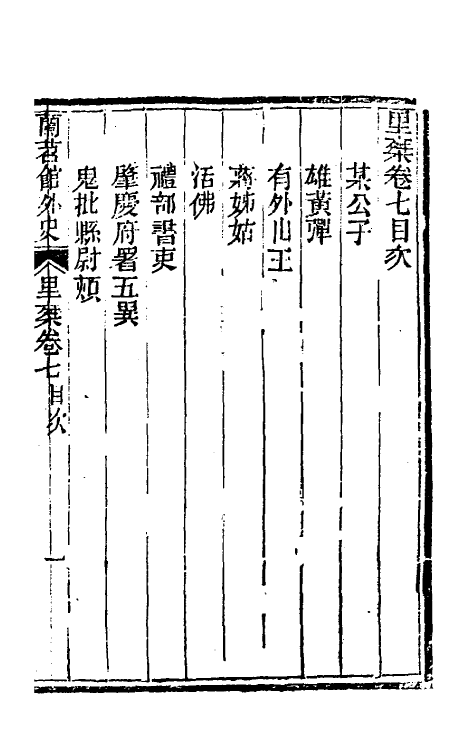 里乘卷七目次
某公子
雄黃彈
有外山王
蔣姊姑
活佛
禮部書吏
肇慶府署五異
鬼批縣尉頰
蘭苕館外史
里乘卷七 目次
一